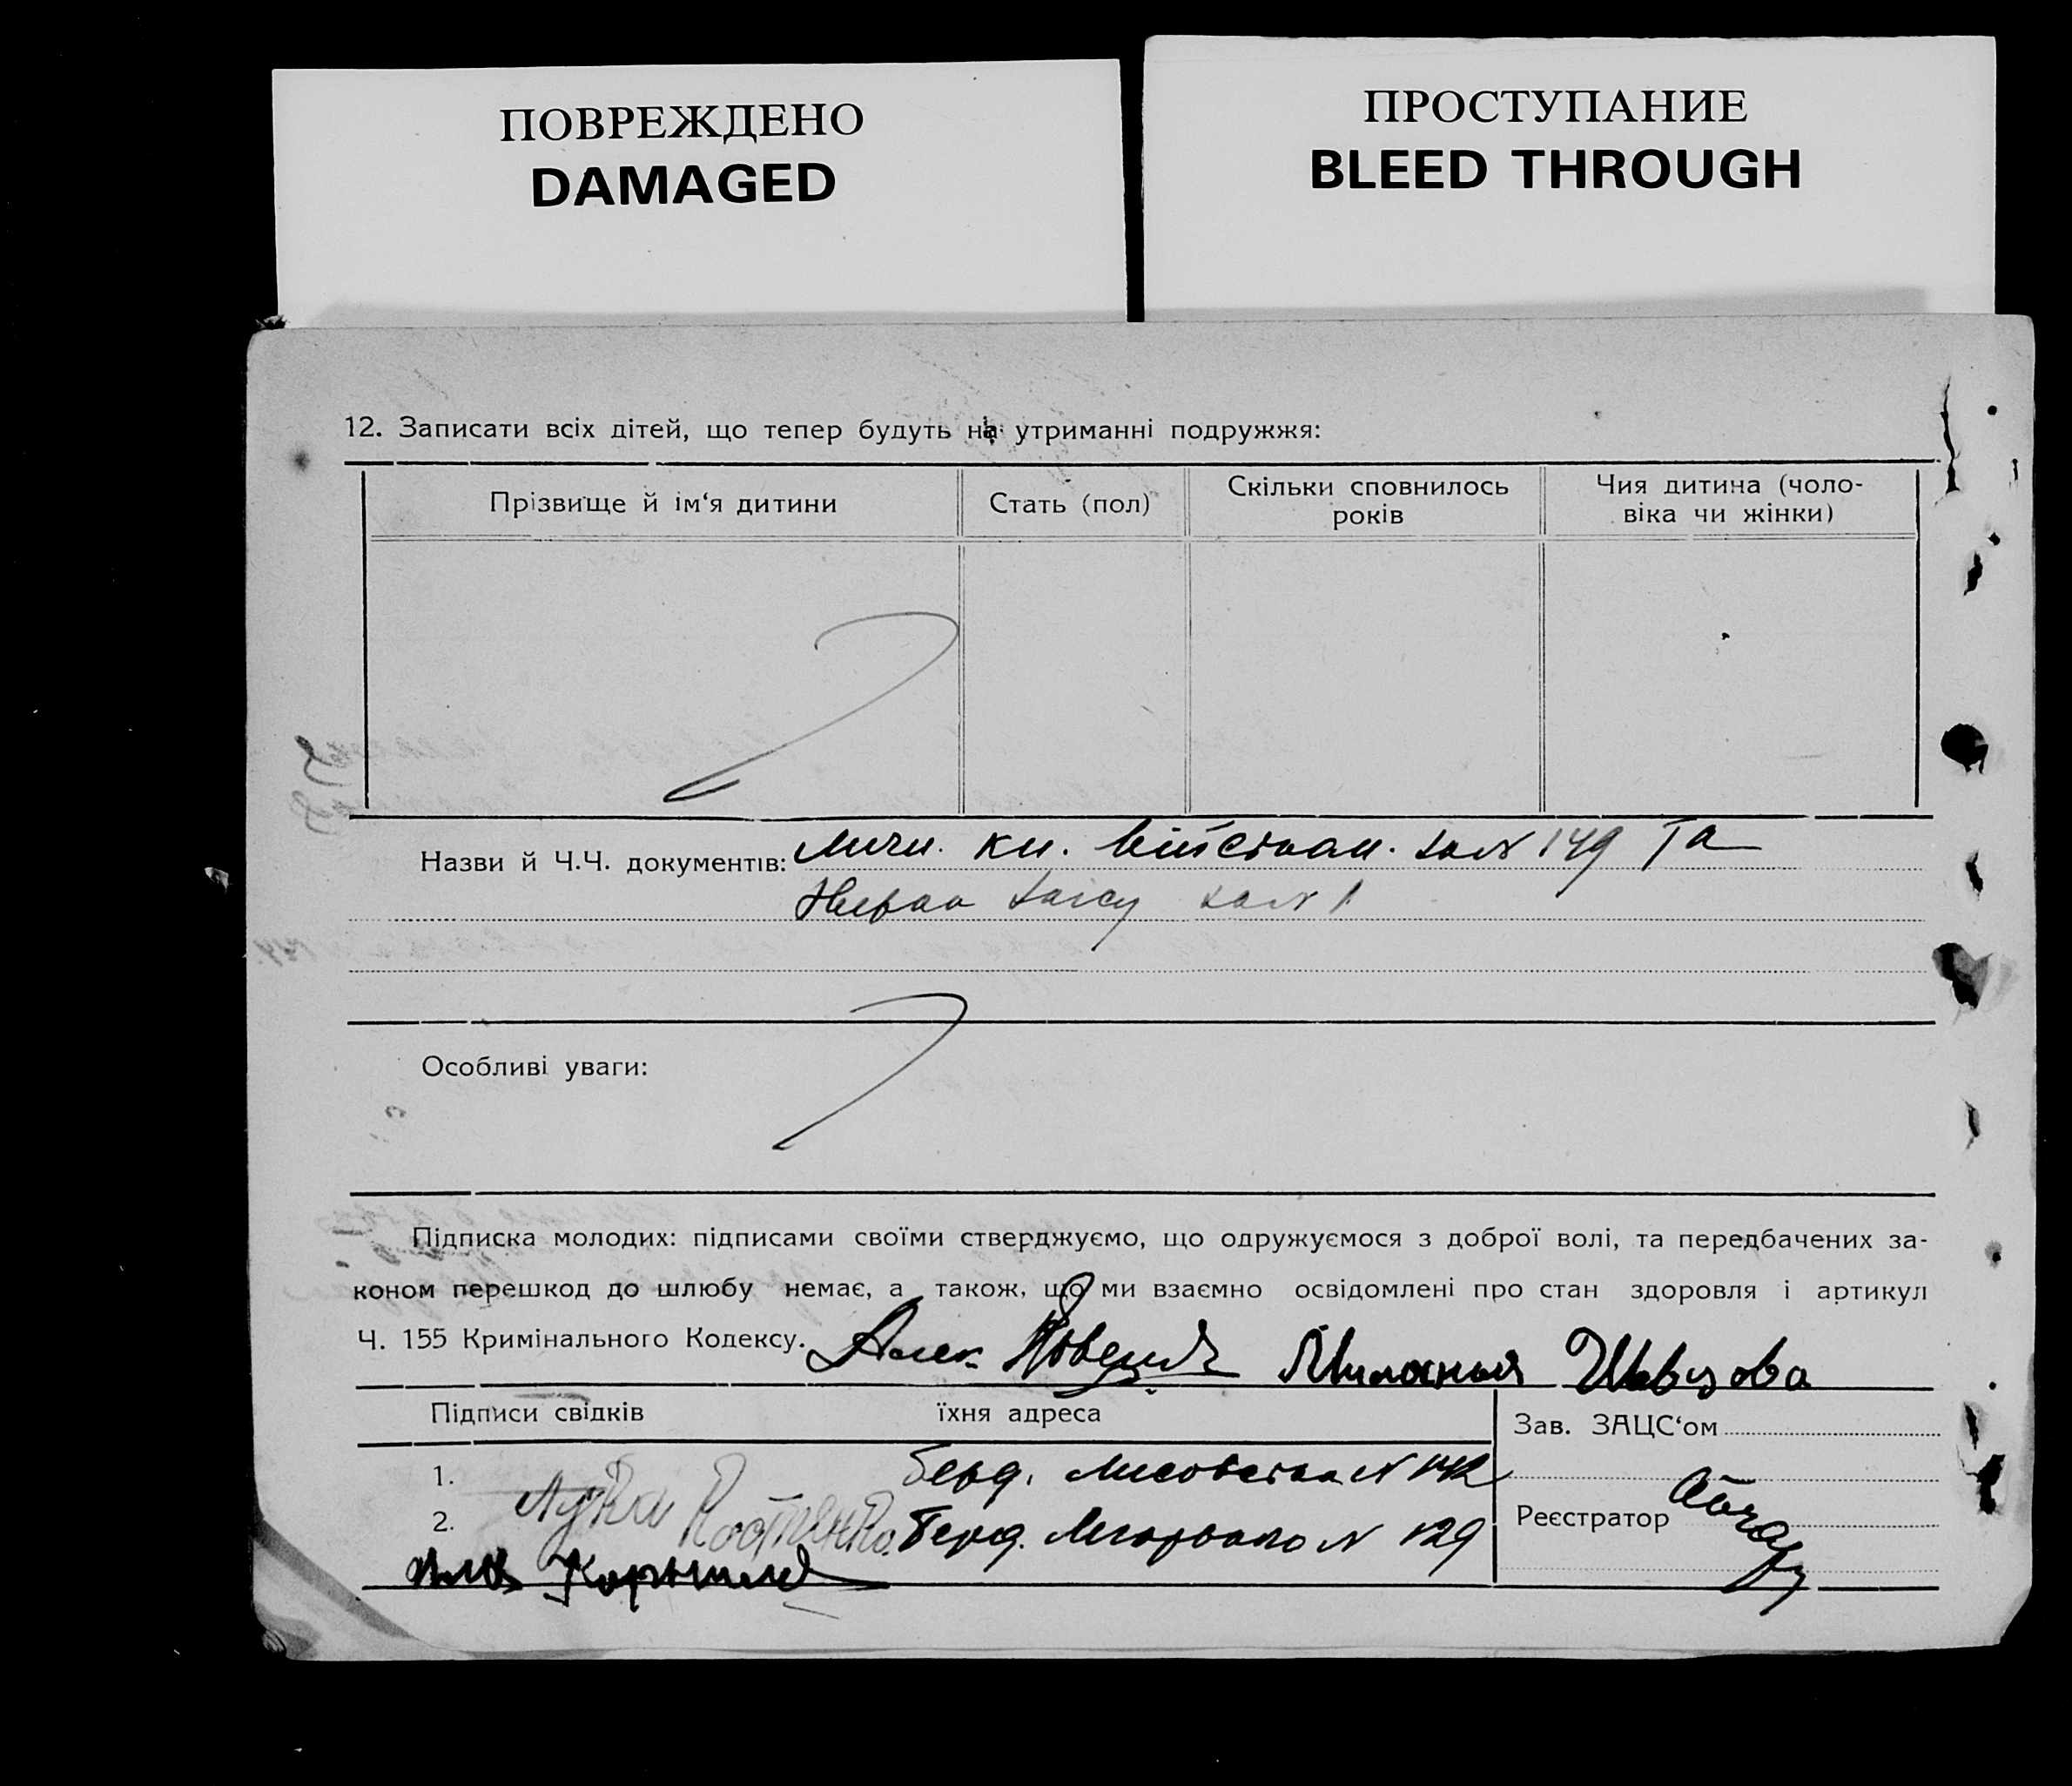 ПОВРЕЖДЕНО
DAMAGED
ПРОСТУПАНИЕ
BLEED THROUGH
12. Записати всіх дітей, що тепер будуть на утриманні подружжя:
Прізвище й ім‘я дитини
Стать (пол)
Скільки сповнилось
років
Чия дитина (чоло-
віка чи жінки)
Назви й Ч.Ч. документів: кн. за № 149 Та
за № 1
Особливі уваги:
Підписка молодих: підписами своїми стверджуємо, що одружуємося з доброї волі, та передбачених за-
коном перешкод до шлюбу немає, а також, що ми взаємно освідомлені про стан здоровля і артикул
Ч. 155 Кримінального Кодексу. Алек Шевцова
Підписи свідків
їхня адреса
Зав. ЗАЦС‘ом
1. Лука Костенко Берд. Лисовская №
2. Берд. № 129
Реєстратор